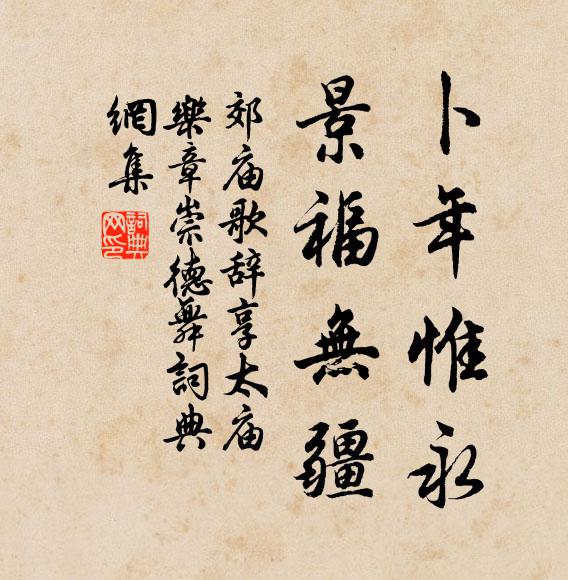 卜年惟永
景福無疆
郊庙歌辞享太庙
樂章崇德舞詞典
網集
詞典
网印